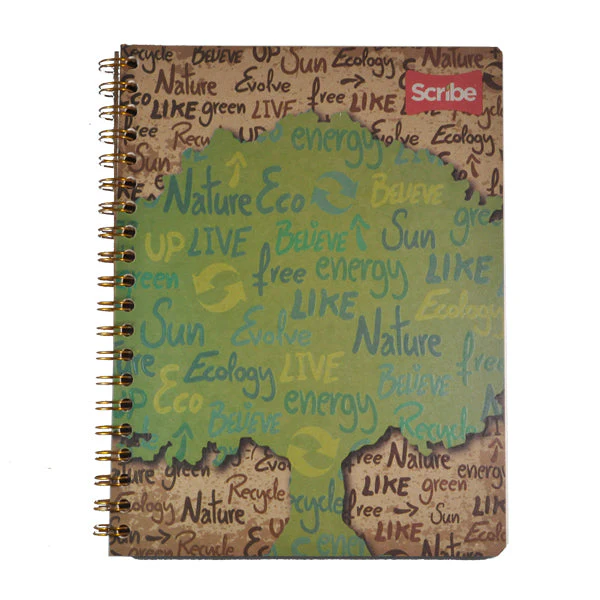 Recycle BELIEVE UP Sun Ecology Nature
Nature Evolve free → LIKE
Scribe
Eco LIKE green LIVE
free Recy UP energy BELIEVE Ecology
Sun Nature Eco BELIEVE
UP LIVE BELIEVE Sun gree
green free energy LIKE
LIKE Ecology
Sun Evolve Nature
ure Ecology LIVE free
UP Eco BELIEVE energy BELIEVE
Recycle
ature green Evo free Nature
Recycle LIKE green
Ecology Nature ecycle LIKE → Sun
green Recycle Ec ener Ecology